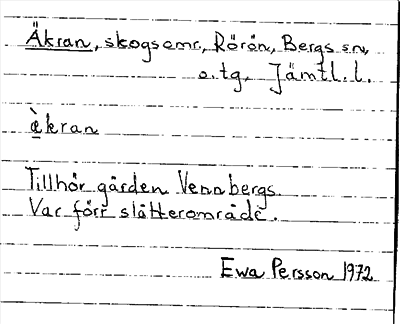 Äkran, skogsomr., Rörön, Bergs sn,
o. tg, Jämtl. l.
ѐkran
Tillhör gården Vennbergs.
Var förr slåtterområde.
Ewa Persson 1972